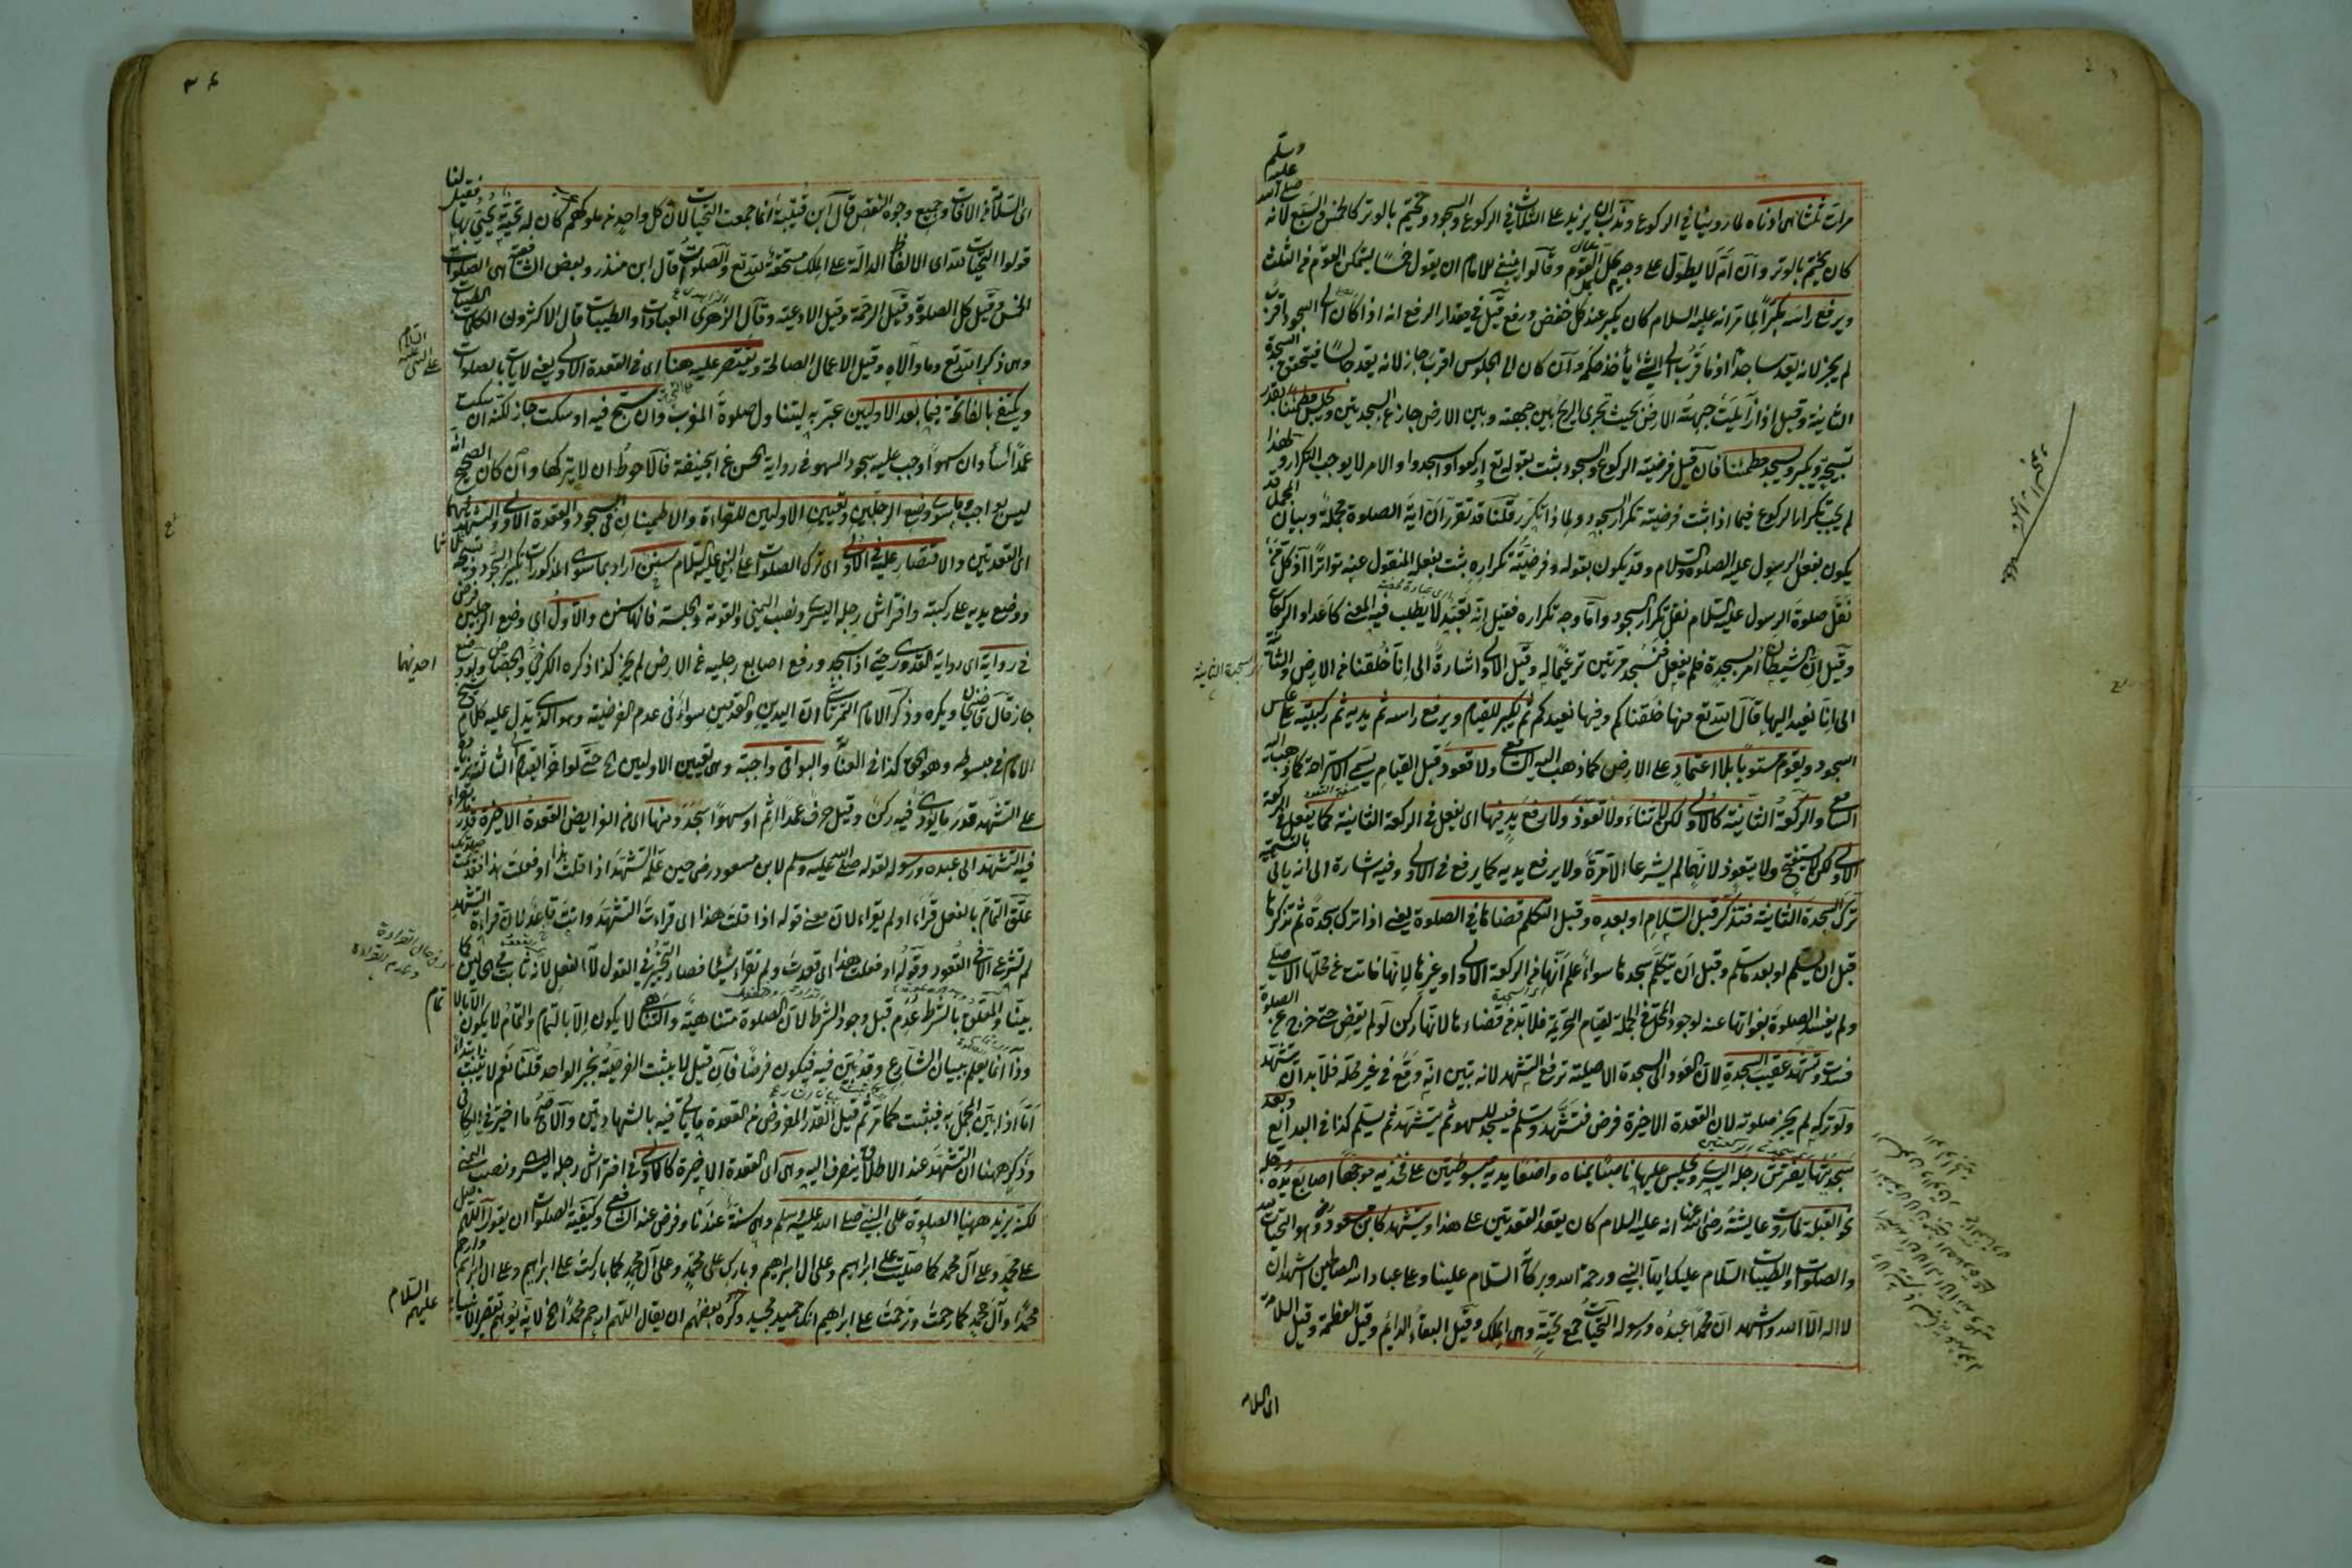 مرات ثلثا هى ادناه لما روينا فى الركوع وندب ان يزيد على الثلاث فى الركوع والسجود ويختم بالوتر كالخمس والسبع لانه صلى الله عليه وسلم
كان يختم بالوتر وان اَمَّ لا يطول على وجه يمل القوم وقالوا ينبغى للامام ان يقول خمسا ليتمكن القوم من الثلث
ويرفع راسه مكبرا لما مر انه عليه السلام كان يكبر عند كل خفض ورفع قيل فى مقدار الرفع انه اذا كان الى السجود اقرب
لم يجز لانه يعد ساجدا اذ ما قرب الى الشئ يأخذ حكمه وان كان الى الجلوس اقرب جاز لانه يعد جالسا فيتحقق السجدة
الثانية وقيل اذا زايلت جبهته الارض بحيث تجرى الريح بين جبهته وبين الارض جاز عن السجدتين ويجلس مطمئنا بقدر
تسبيحة ويكبر ويسجد مطمئنا فان قيل فرضية الركوع والسجود ثبت بقوله تع اركعوا واسجدوا والامر لا يوجب التكرار ولهذا
لم يجب تكرار الركوع فبماذا ثبت فرضية تكرار السجود ولماذا تكرر قلنا قد تقرر ان آية الصلوة مجملة وبيان المجمل قد
يكون بفعل الرسول عليه الصلوة والسلام وقد يكون بقوله وفرضية تكراره ثبت بفعله المنقول عنه تواترا اذ كل من
نقل صلوة الرسول عليه السلام نقل تكرار السجود واما وجه تكراره فقيل انه تعبد لا يطلب فيه المعنى كاعداد الركعات
وقيل ان الشيطان أمر بسجدة فلم يفعل فنسجد مرتين ترغيما له وقيل الاولى اشارة الى انا خلقنا من الارض والثانية
الى انا نعيد اليها قال الله تع منها خلقناكم وفيها نعيدكم ثم يكبر للقيام ويرفع راسه ثم يديه ثم ركبتيه على عكس
السجود ويقوم مستويا بلا اعتماد على الارض كما ذهب اليه الشافعى ولا قعود قبل القيام يسمى الاستراحة كما ذهب اليه
الشافعى والركعة الثانية كالاولى لكن لا ثناء ولا تعوذ ولا رفع يد فيها اى يفعل فى الركعة الثانية كما يفعل فى الركعة
الاولى لكن لا يستفتح ولا يتعوذ لانهما لم يشرعا الا مرة ولا يرفع يديه كما يرفع فى الاولى وفيه اشارة الى انه ياتى بالتسمية
ترك السجدة الثانية فتذكر قبل السلام او بعده وقبل التكلم قضاها فى الصلوة يعنى اذا ترك سجدة ثم تذكرها
قبل ان يسلم او بعد ما سلم وقبل ان يتكلم سجدها سواء علم انها من الركعة الاولى او غيرها لانها فاتت عن محلها الاصلى
ولم يفسد الصلوة بفواتها عنه لوجود المحل فى الجملة لقيام التحريمة فلا بد من قضاءها لانها ركن لو لم يقض حتى خرج عن الصلوة
فسدت وتشهد عقيب السجدة لان العود الى السجدة الاصلية ترفع التشهد لانه تبين انه وقع فى غير محله فلا بد ان يتشهد
ولو تركه لم يجز صلوته لان القعدة الاخيرة فرض فتشهد وسلم فيسجد للسهو ثم يتشهد ثم يسلم كذا فى البدائع وبعد
سجدتيها يفترش رجله اليسرى ويجلس عليها ناصبا يمناه واضعا يديه مبسوطتين على فخذيه موجها اصابع يديه ورجله
نحو القبلة لما روت عايشة رضى الله عنها انه عليه السلام كان يقعد القعدتين على هذا ويتشهد كابن مسعود وهو التحيات لله
والصلوات والطيبات السلام عليك ايها النبى ورحمة الله وبركاته السلام علينا وعلى عباد الله الصالحين اشهد ان
لا اله الا الله واشهد ان محمدا عبده ورسوله التحيات جمع تحية وهى الملك وقيل البقاء الدائم وقيل العظمة وقيل السلامة
اى السلامة
السجدة الثانية
اى السلامة من الآفات وجميع وجوه النقص قال ابن قتيبة انما جمعت التحيات لان كل واحد من ملوكهم كان له تحية يحيى بها فقيل لنا
قولوا التحيات لله اى الالفاظ الدالة على الملك مستحقة لله تع والصلوات قال ابن منذر وبعض الشافعية هى الصلوات
الخمس وقيل كل الصلوة وقيل الرحمة وقيل الادعية وقال الازهرى العبادات والطيبات قال الاكثرون الكلمات الطيبات
وهى ذكر الله تع وما والاه وقيل الاعمال الصالحة ويقتصر عليه هنا اى فى القعدة الاولى يعنى لا ياتى بالصلوات
على النبى عليه السلام
ويكتفى بالفاتحة فيما بعد الاوليين عبر به ليتناول صلوة المغرب وان سبح فيه او سكت جاز لكنه ان سكت
عمدا أسأ وان سهوا وجب عليه سجود السهو فى رواية الحسن عن ابى حنيفة فالاحوط ان لا يتركها وان كان الصحيح انه
ليس بواجب وما سوى وضع الرجلين وتعيين الاوليين للقراءة والاطمينان فى السجود والقعدة الاولى والتشهد فيهما
اى القعدتين والاقتصار عليه فى الاولى اى ترك الصلوات على النبى عليه السلام سنن اراد بما سوى المذكورات تكبير السجود وتسبيحه ثلاثا
ووضع يديه على ركبته وافتراش رجله اليسرى ونصب اليمنى والقومة والجلسة فانها سنن والاول اى وضع الرجلين فرض
فى رواية اى رواية القدورى حتى اذا سجد ورفع اصابع رجليه عن الارض لم يجز كذا ذكره الكرخى والجصاص ولو وضع
احديهما
جاز قال قاضيخان ويكره وذكر الامام التمرتاشى ان اليدين والقدمين سواء فى عدم الفرضية وهو الذى يدل عليه كلام شيخ
الاسلام فى مبسوطه وهو الحق كذا فى العناية والبواقى واجبة وهى تعيين الاوليين الخ حتى لو اخر القيام الى الثالثة بزيادة
على التشهد قدر ما يؤدى فيه ركن وقيل حرف عمدا اثم او سهوا سجد ومنها اى من الفرايض القعدة الاخيرة قدر ما يقراء
فيه التشهد الى عبده ورسوله لقوله صلى الله عليه وسلم لابن مسعود رض حين علمه التشهد اذا قلت هذا او فعلت هذا فقد تمت صلوتك
علق التمام بالفعل قراء او لم يقراء لان معنى قوله اذا قلت هذا اى قراءت التشهد وانت قاعد لان قراءة التشهد
لم تشرع الا فى القعود وقوله او فعلت هذا اى قعدت ولم تقراء شيئا فصار التخيير فى القول لا الفعل لانه ثابت فى الحالين كما
فى حال القراءة
وعدم القراءة
بينا والمعلق بالشرط عدم قبل وجود الشرط لان الصلوة متناهية والتناهى لا يكون الا بالتمام والتمام لا يكون الا بالاتمام
وذا انما يعلم ببيان الشارع وقد بين فيه فيكون فرضا فان قيل لا يثبت الفرضية بخبر الواحد قلنا نعم لا يثبت ابتداء
اما اذا بين المجمل به فيثبت كما مر ثم قيل القدر المفروض من القعدة ما ياتى فيه بالشهادتين والاصح ما اختير فى الكافى
وذكر ههنا ان التشهد عند الاطلاق ينصرف اليه وهى اى القعدة الاخيرة كالاولى فى افتراش رجله اليسرى ونصب اليمنى
لكنه يزيد ههنا الصلوة على النبى صلى الله عليه وسلم وهى سنة عندنا وفرض عند الشافعى وكيفية الصلوات ان يقول اللهم صل
على محمد وعلى آل محمد كما صليت على ابراهيم وعلى ال ابراهيم وبارك على محمد وعلى آل محمد كما باركت على ابراهيم وعلى ال ابراهيم وارحم
محمدا وآل محمد كما رحمت وترحمت على ابراهيم انك حميد مجيد وكره بعضهم ان يقال اللهم ارحم محمدا الخ لانه يوهم تقصير الانبياء
عليهم السلام